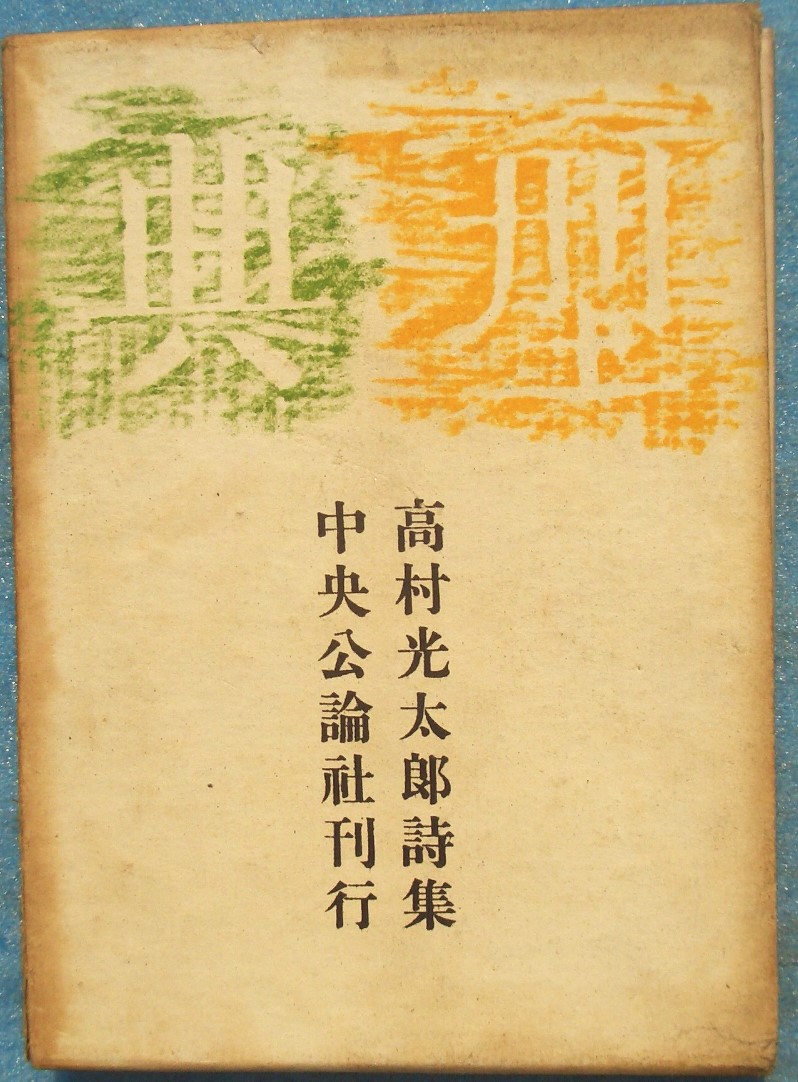 典型
高村光太郎詩集
中央公論社刊行